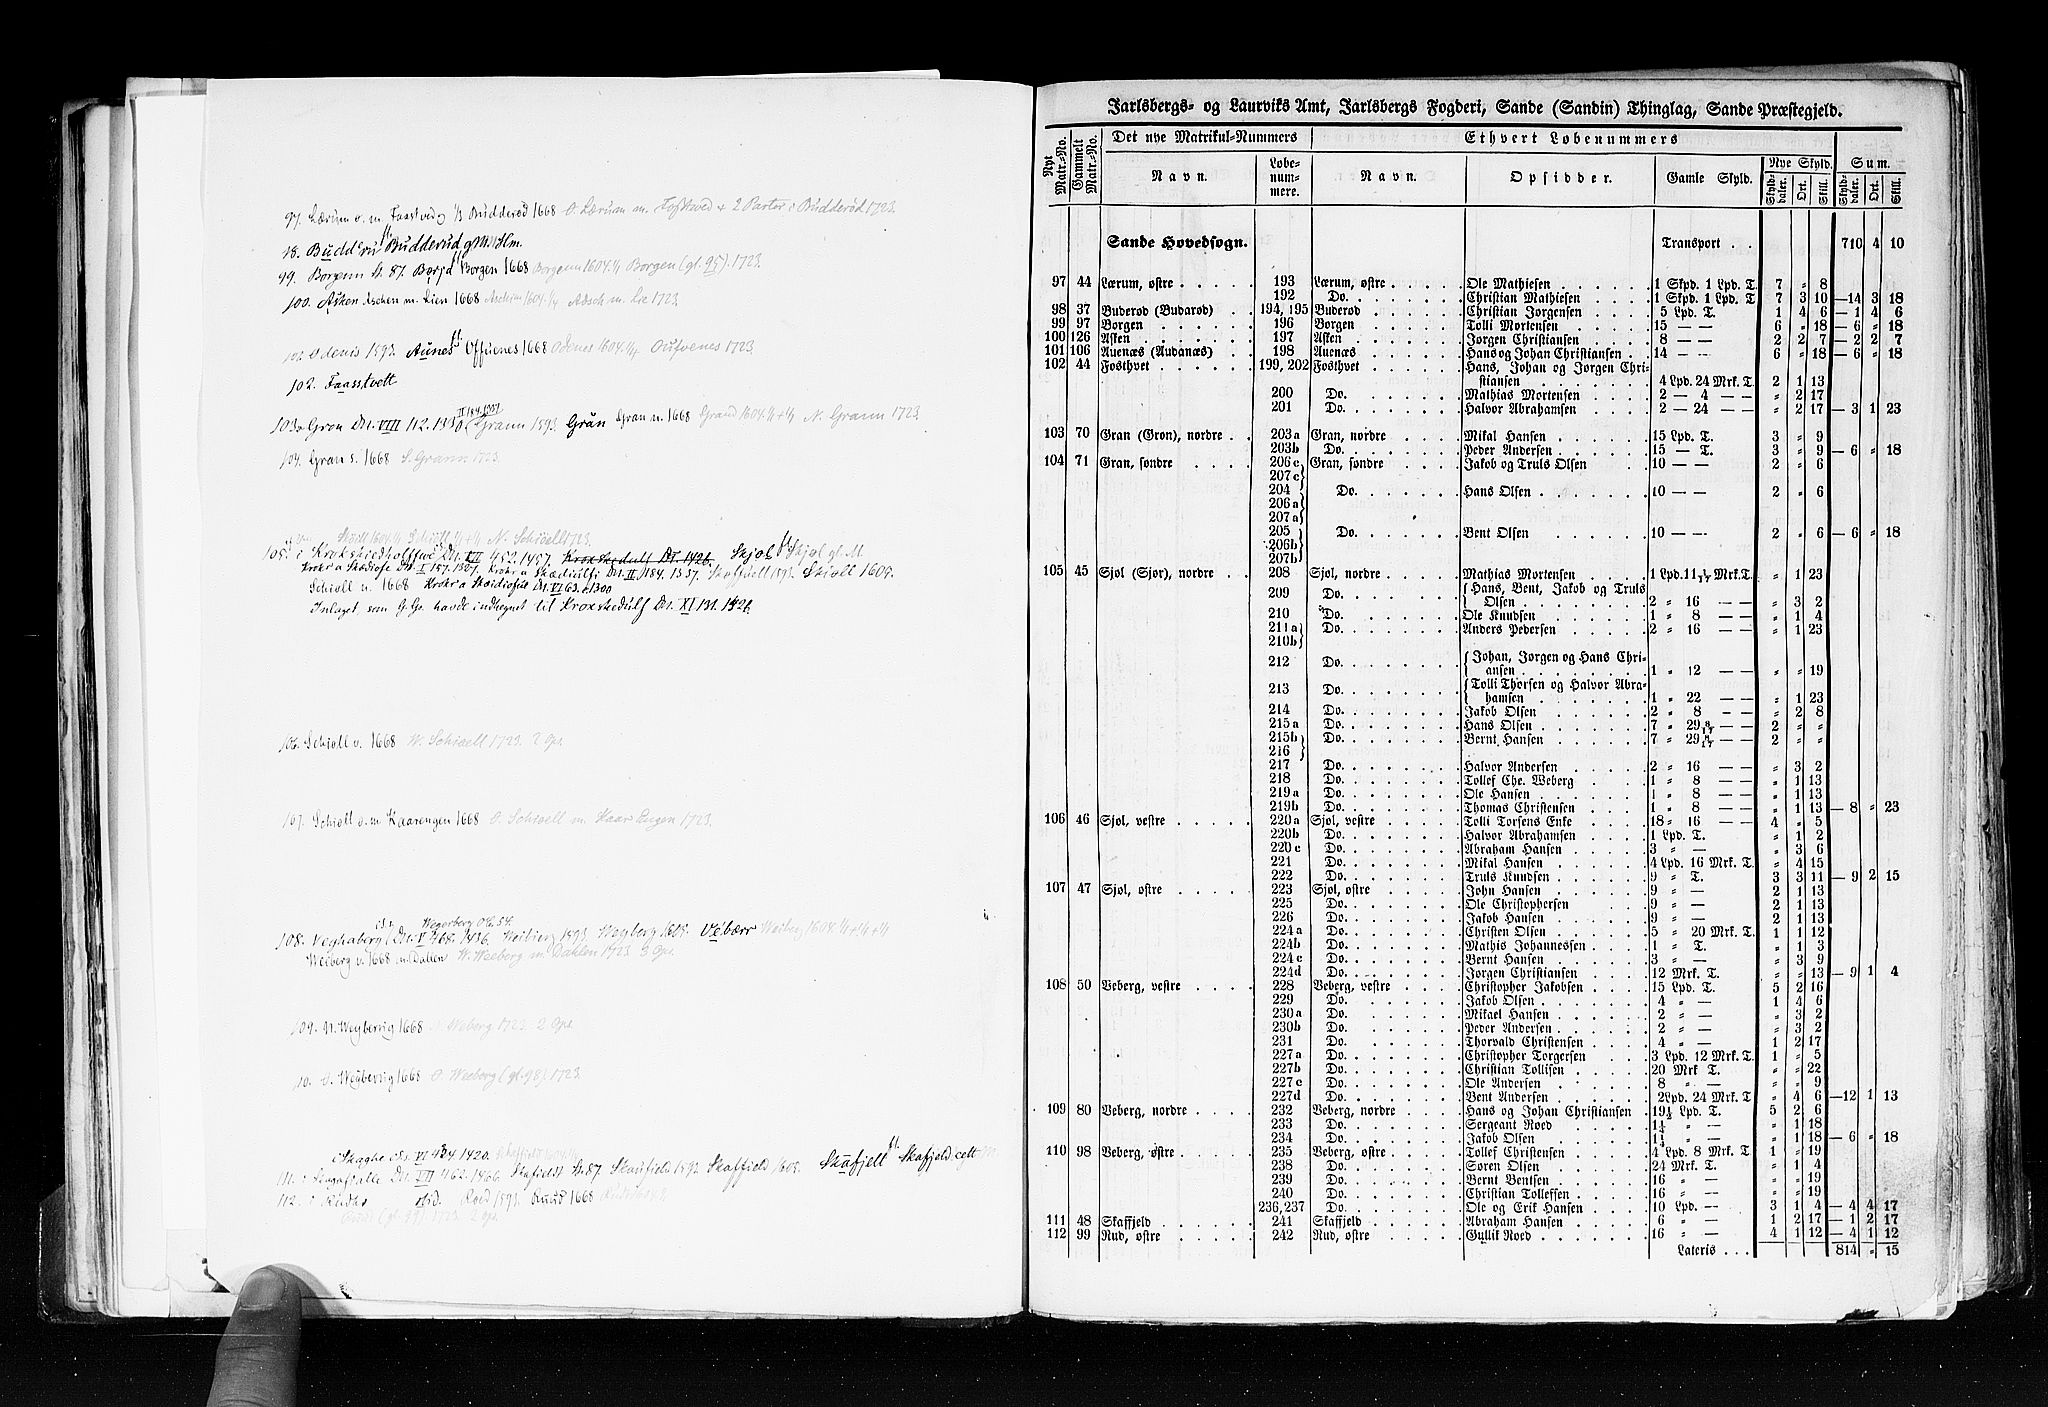 97. Lærum o. m. Faastvedg 1/3 Budderød 1668 O. Lærum m. Fosstved + 2 Parter i Budderød 1723.
98. Budderu Budderud gM. Hm.
99. Borgenn St. 87. Borgen 1668 Borgenn 1604. 1/1 Borgen (gl. 95). 1723.
100. Asken Aschen m. Lien 1668 Aschim 1604. 1/4 Adsch m. Lie 1723.
Odenis 1593. Aunes Offuenes 1668 Odenes 1604. Oufvenes 1723.
102. Faasstvett
II 184. 1337
103. Gron Dn. VIII 112. Grann 1593. Grån Gran n. 1668 Grand 1604. N. Grann 1723.
104. Gran s. 1668 S. Grann 1723.
N. Schiøell 1723.
105. i Krokskiedholffwe Dn. VII 452. 1457. Kroxskedulf Dn. 1426. Skjøl Skjøl gl. M.
Schiøll n. 1668
Indlaget, som G. Gr. havde indhegnet til Kroxskedulf Dn. XI 131. 1426.
106. Schiøll v. 1668 W. Schiøell 1723. 2 Ops.
107. Schiøll o. m. Kaarengen 1668 O. Schiøell m. Kaar Engen 1723.
Wegerberg OE. 54.
108. Veghaberg Dn. V 468. 1436. Weibierg 1593. Weyberg 1605. Vebærr
Weiberg v. 1668 m. Dalen W. Weeberg m. Dahlen 1723 3 Ops.
109. N. Weyberrig 1668 N. Weberg 1723. 2 Ops.
O. Weyberrig 1668 O. Weeberg (gl. 98). 1723.
i Skaghe VI 424. 1420.
111. Dn. VII 462. 1466. Skafieldt St. 87. Skaufield 1593. Skaffield 1605. Skafjell Skafjeld
112. i Rudho ibid. Roed 1593. Ruud 1668
Ruud (gl. 99) 1723. 2 Ops.
Jarlsbergs- og Laurviks Amt, Jarlsbergs Fogderi, Sande (Sandin) Thinglag, Sande Præstegjeld.
Nyt Matr.-No. Gammelt Matr.-No. Det nye Matrikul-Nummers Ethvert Løbenummers
Navn. Løbenummere. Navn. Opsidder. Gamle Skyld. Nye Skyld. Sum.
Skylddaler. Ort. Skill. Skylddaler. Ort. Skill.
Sande Hovedsogn. Transport . . 710 4 10
97 44 Lærum, østre 193 Lærum, østre Ole Mathiesen 1 Skpd. 1 Lpd. T. 7 " 8
192 Do. Christian Mathiesen 1 Skpd. 1 Lpd. T. 7 3 10 —14 3 18
98 37 Buderød (Budarød) 194, 195 Buderød Christian Jørgensen 5 Lpd. T. 1 4 6 — 1 4 6
99 97 Borgen 196 Borgen Tolli Mortensen 15 — — 6 " 18 — 6 " 18
100 126 Asken 197 Asken Jørgen Christiansen 8 — — 2 2 7 — 2 2 7
101 106 Auenæs (Audanæs) 198 Auenæs Hans og Johan Christiansen 14 — — 6 " 18 — 6 " 18
102 44 Fosthvet 199, 202 Fosthvet Hans, Johan og Jørgen Chri-
stiansen 4 Lpd. 24 Mrk. T. 2 1 13
200 Do. Mathias Mortensen 2 — 4 — — " 2 17
201 Do. Halvor Abrahamsen 2 — 24 — — " 2 17 — 3 1 23
103 70 Gran (Gron), nordre 203a Gran, nordre Mikal Hansen 15 Lpd. T. 3 " 9
203b Do. Peder Andersen 15 — T. 3 " 9 — 6 " 18
104 71 Gran, søndre 206c Gran, søndre Jakob og Truls Olsen 10 — — 2 " 6
207c
204 Do. Hans Olsen 10 — — 2 " 6
206a
207a
205 Do. Bent Olsen 10 — — 2 " 6 — 6 " 18
206b
207b
105 45 Sjøl (Sjør), nordre 208 Sjøl, nordre Mathias Mortensen 1 Lpd. 11 1/17 Mrk. T. " 1 23
209 Do. Hans, Bent, Jakob og Truls
Olsen 2 " 16 — — " 3 2
210 Do. Ole Knudsen 1 " 8 — — " 1 4
211a Do. Anders Pedersen 2 " 16 — — " 1 23
210b
212 Do. Johan, Jørgen og Hans Chri-
ansen 1 " 12 — — " " 19
213 Do. Tolli Thorsen og Halvor Abra-
hamsen 1 " 22 — — " 1 23
214 Do. Jakob Olsen 2 " 8 — — " 2 8
215a Do. Hans Olsen 7 " 29 8/17 — — 2 " "
215b Do. Bernt Hansen 7 " 29 8/17 — — 2 " "
216
217 Do. Halvor Andersen 2 " 16 — — " 3 2
218 Do. Tollef Che. Weberg 1 " 8 — — " 1 13
219a Do. Ole Hansen 1 " 8 — — " 1 13
219b Do. Thomas Christensen 1 " 8 — — " 1 13 — 8 " 23
106 46 Sjøl, vestre 220a Sjøl, vestre Tolli Torsens Enke 18 " 16 — — 4 " 5
220b Do. Halvor Abrahamsen 1 Lpd. T. " 1 2
220c Do. Abraham Hansen 3 " — " 3 6
221 Do. Mikal Hansen 4 Lpd. 16 Mrk. T. " 4 15
222 Do. Truls Knudsen 9 " T. 3 3 11 — 9 2 15
107 47 Sjøl, østre 223 Sjøl, østre John Hansen 9 " — 2 1 13
225 Do. Ole Christophersen 9 " — 2 1 13
226 Do. Jakob Hansen 9 " — 2 1 13
224a Do. Christen Olsen 5 " 20 Mrk. T. 1 1 12
224b Do. Mathis Johannessen 1 " T. " 1 3
224c Do. Bernt Hansen 3 " — " 3 9
224d Do. Jørgen Christiansen 12 Mrk. T. " " 13 — 9 1 4
108 50 Veberg, vestre 228 Veberg, vestre Christopher Jakobsen 15 Lpd. T. 5 2 16
229 Do. Jakob Olsen 4 " — 1 4 6
230a Do. Mikael Hansen 2 " — " 3 2
230b Do. Peder Andersen 2 " — " 3 2
231 Do. Thorvald Christensen 4 " — 1 2 17
227a Do. Christopher Torgersen 3 Lpd. 12 Mrk. T. 1 " 5
227b Do. Christian Tollisen 20 Mrk T. " " 22
227c Do. Ole Andersen 8 " — " " 9
227d Do. Bent Andersen 2Lpd. 24 Mrk. T " 4 6 —12 1 13
109 80 Veberg, nordre 232 Veberg, nordre Hans og Johan Christiansen 19½ Lpd. T. 5 2 6
233 Do. Sergeant Roed " 1 18
234 Do. Jakob Olsen " 1 18 — 6 " 18
110 98 Veberg, østre 235 Veberg, østre Tollef Christensen 4 Lpd. 8 Mrk. T. 1 " 19
238 Do. Søren Olsen 24 Mrk. T. " 1 4
239 Do. Bernt Bentsen 16 " — " " 19
240 Do. Christian Tollefsen 16 " — " " 19
236,237 Do. Ole og Erik Hansen 10 Lpd. — 3 1 4 — 4 4 17
111 48 Skaffjeld 241 Skaffjeld Abraham Hansen 6 " — 1 2 17 — 1 2 17
112 99 Rud, østre 242 Rud, østre Gullik Roed 16 " — 4 1 12 — 4 1 12
Lateris . . . 814 " 15